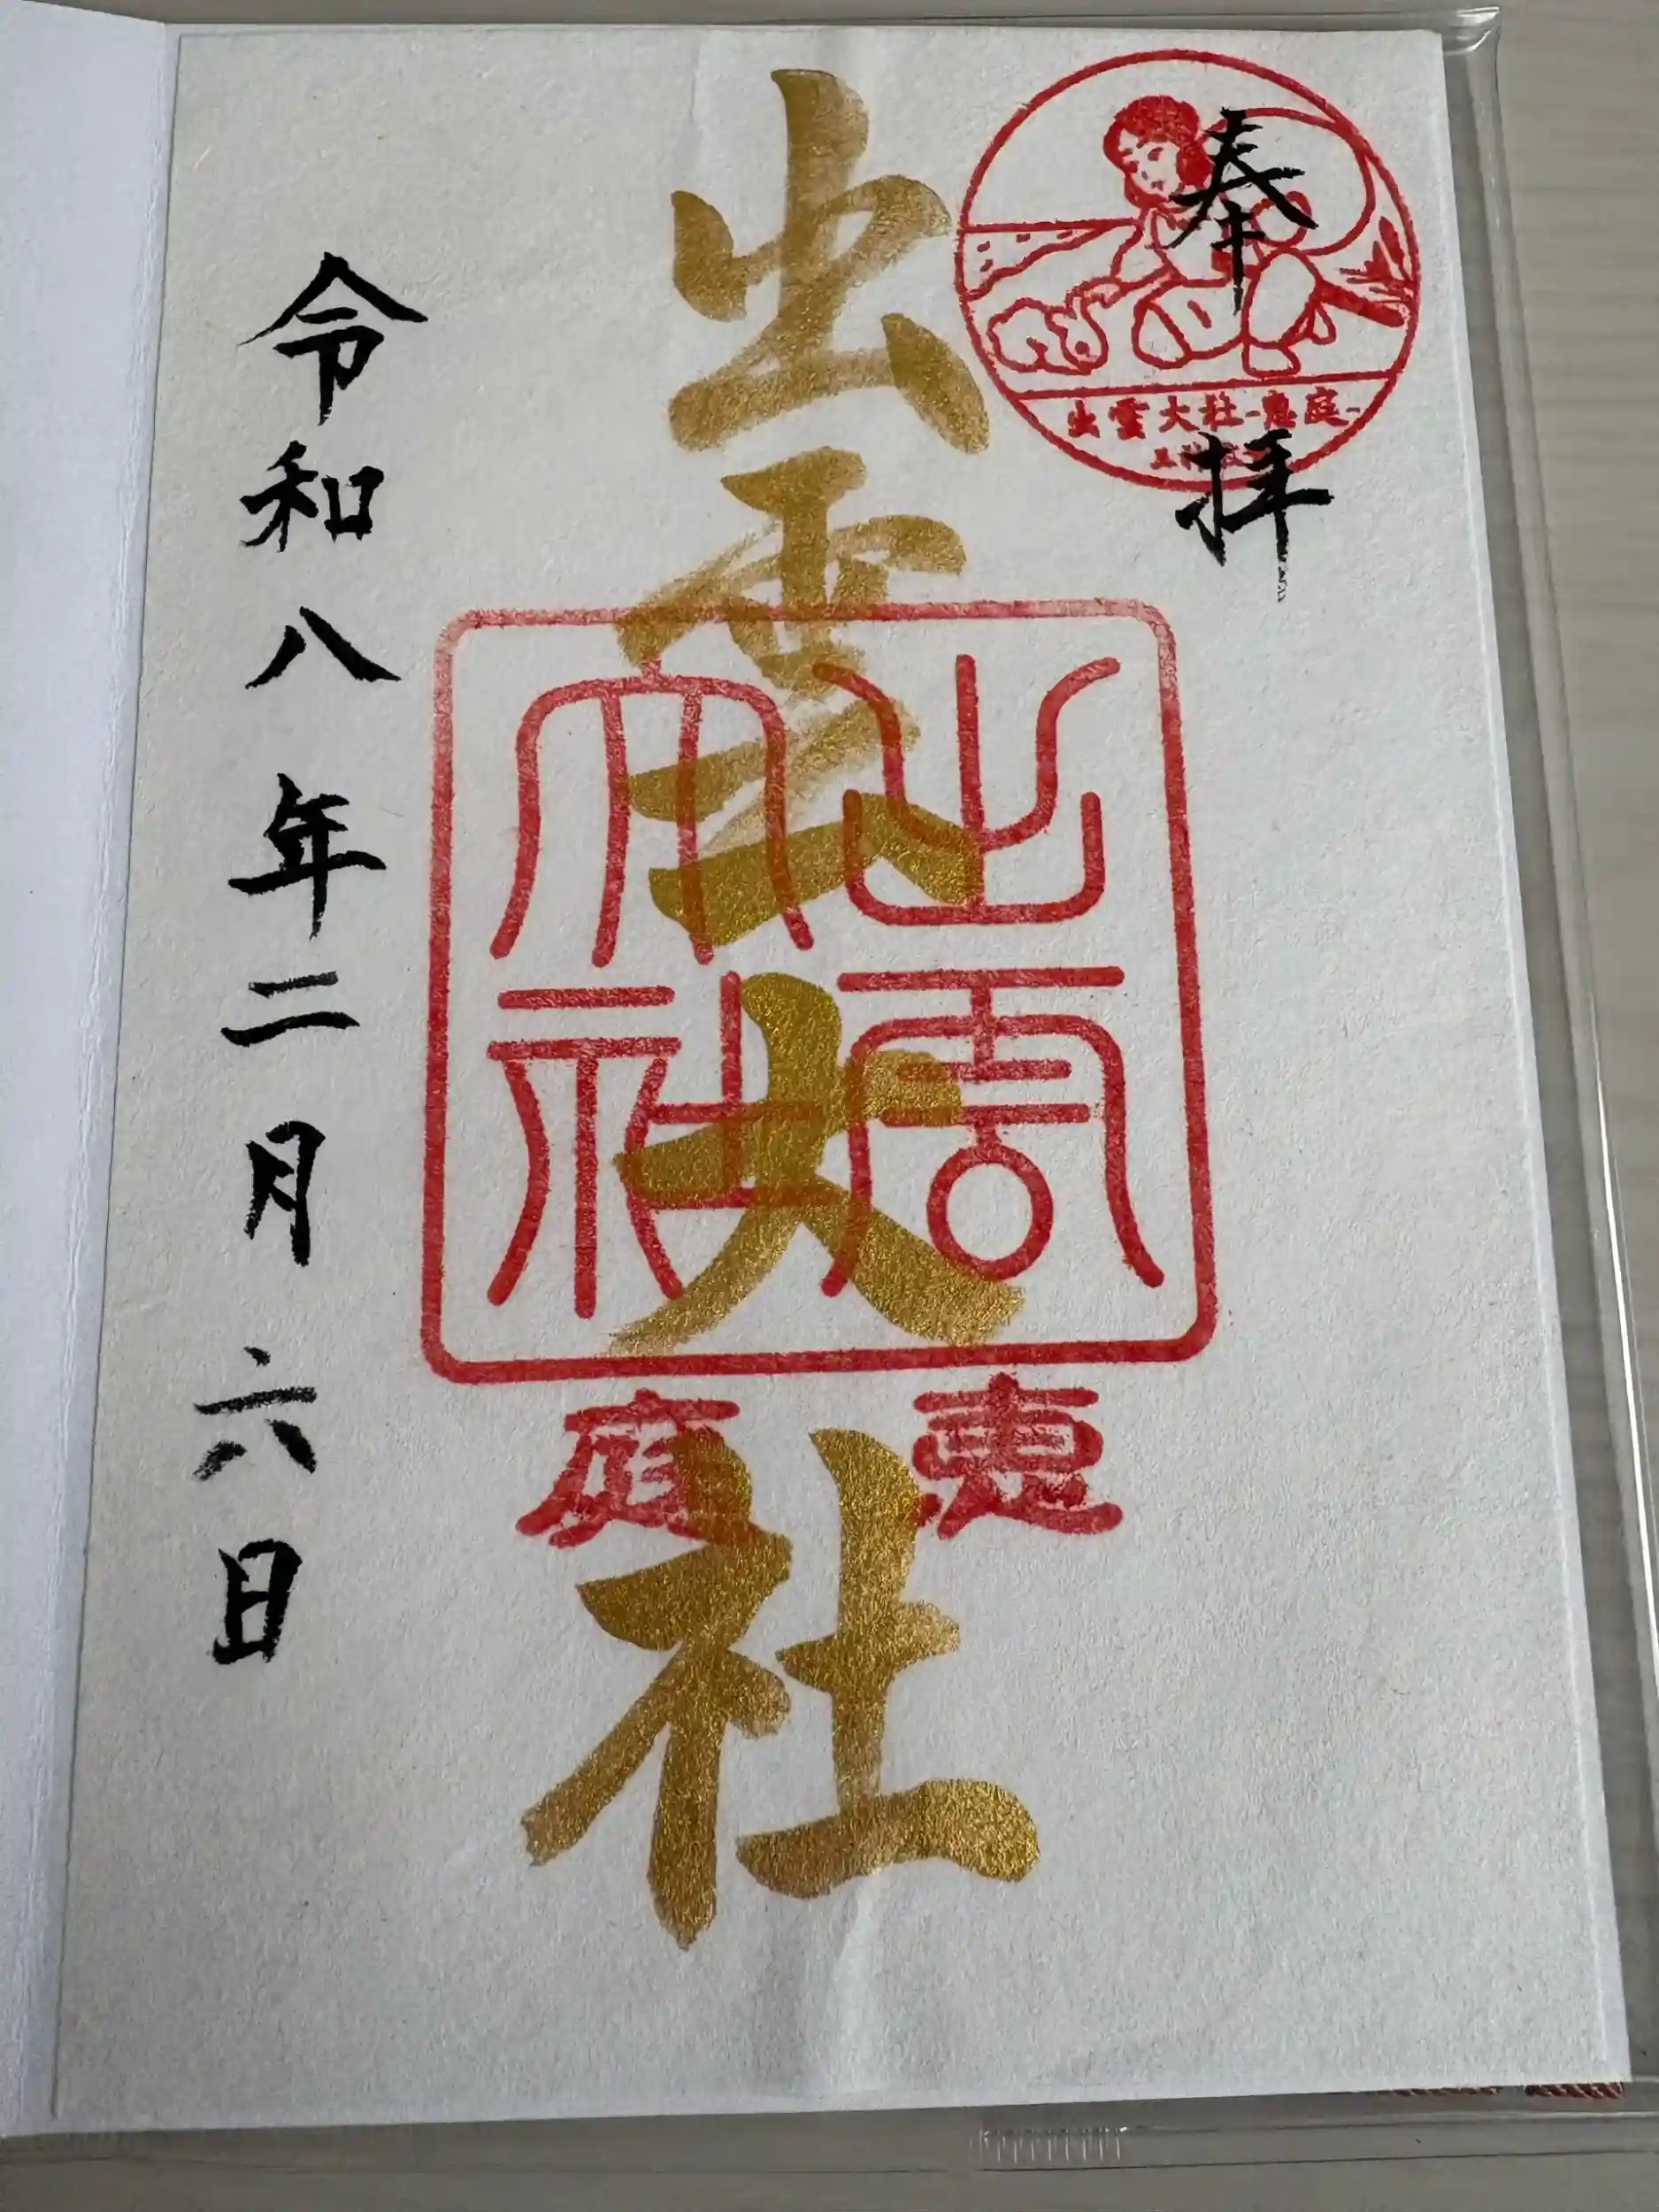 奉拝
出雲大社-恵庭-
出雲大社
出雲
大社
恵庭
令和八年二月六日